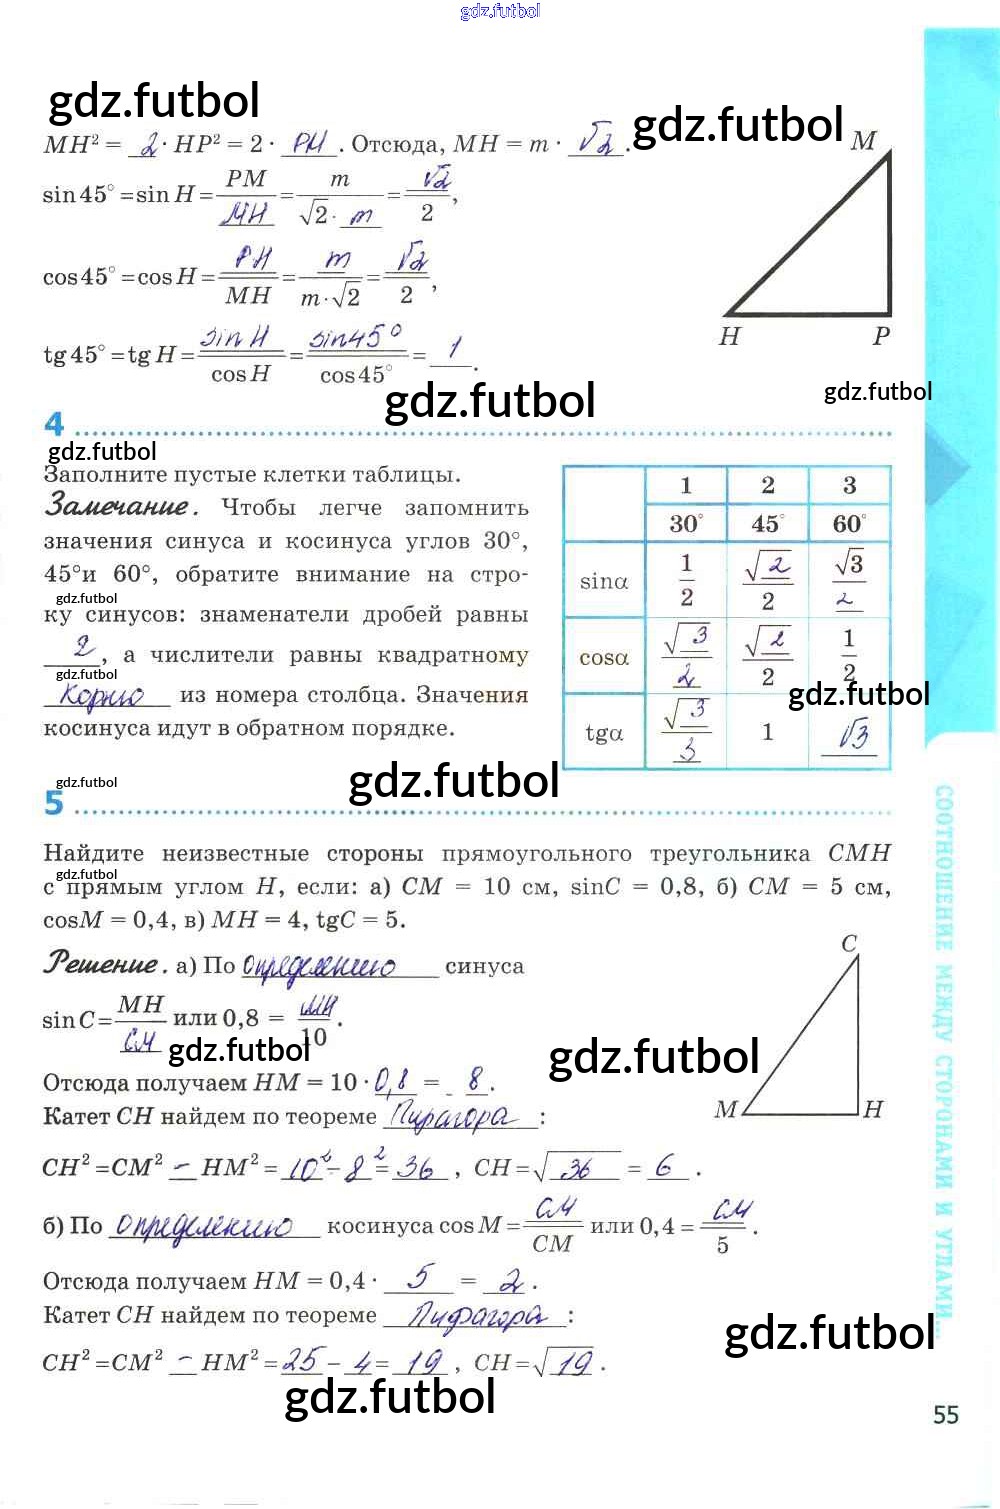 gdz.futbol
gdz.futbol
gdz.futbol
MH² = 2 · HP² = 2 · PH . Отсюда, MH = m · √2 .
M
sin 45° = sin H = PM/MH = m/(√2 · m) = √2/2,
cos 45° = cos H = PH/MH = m/(m·√2) = √2/2,
H P
tg 45° = tg H = sin H/cos H = sin 45°/cos 45° = 1 .
gdz.futbol
gdz.futbol
4
gdz.futbol
Заполните пустые клетки таблицы.
Замечание. Чтобы легче запомнить
значения синуса и косинуса углов 30°,
45°и 60°, обратите внимание на стро-
gdz.futbol
ку синусов: знаменатели дробей равны
2, а числители равны квадратному
gdz.futbol
корню из номера столбца. Значения
косинуса идут в обратном порядке.
1 2 3
30° 45° 60°
sinα 1/2 √2/2 √3/2
cosα √3/2 √2/2 1/2
gdz.futbol
tgα √3/3 1 √3
gdz.futbol
gdz.futbol
5
Найдите неизвестные стороны прямоугольного треугольника CMH
gdz.futbol
с прямым углом H, если: а) CM = 10 см, sinC = 0,8, б) CM = 5 см,
cosM = 0,4, в) MH = 4, tgC = 5.
C
Решение. а) По определению синуса
sin C = MH/CM или 0,8 = MH/10 .
gdz.futbol
gdz.futbol
Отсюда получаем HM = 10 · 0,8 = 8 .
Катет CH найдем по теореме Пифагора :
M H
CH² = CM² – HM² = 10² – 8² = 36 , CH = √36 = 6 .
б) По определению косинуса cos M = CM/CM или 0,4 = CM/5 .
Отсюда получаем HM = 0,4 · 5 = 2 .
Катет CH найдем по теореме Пифагора :
gdz.futbol
CH² = CM² – HM² = 25 – 4 = 19 , CH = √19 .
gdz.futbol
СООТНОШЕНИЕ МЕЖДУ СТОРОНАМИ И УГЛАМИ...
55